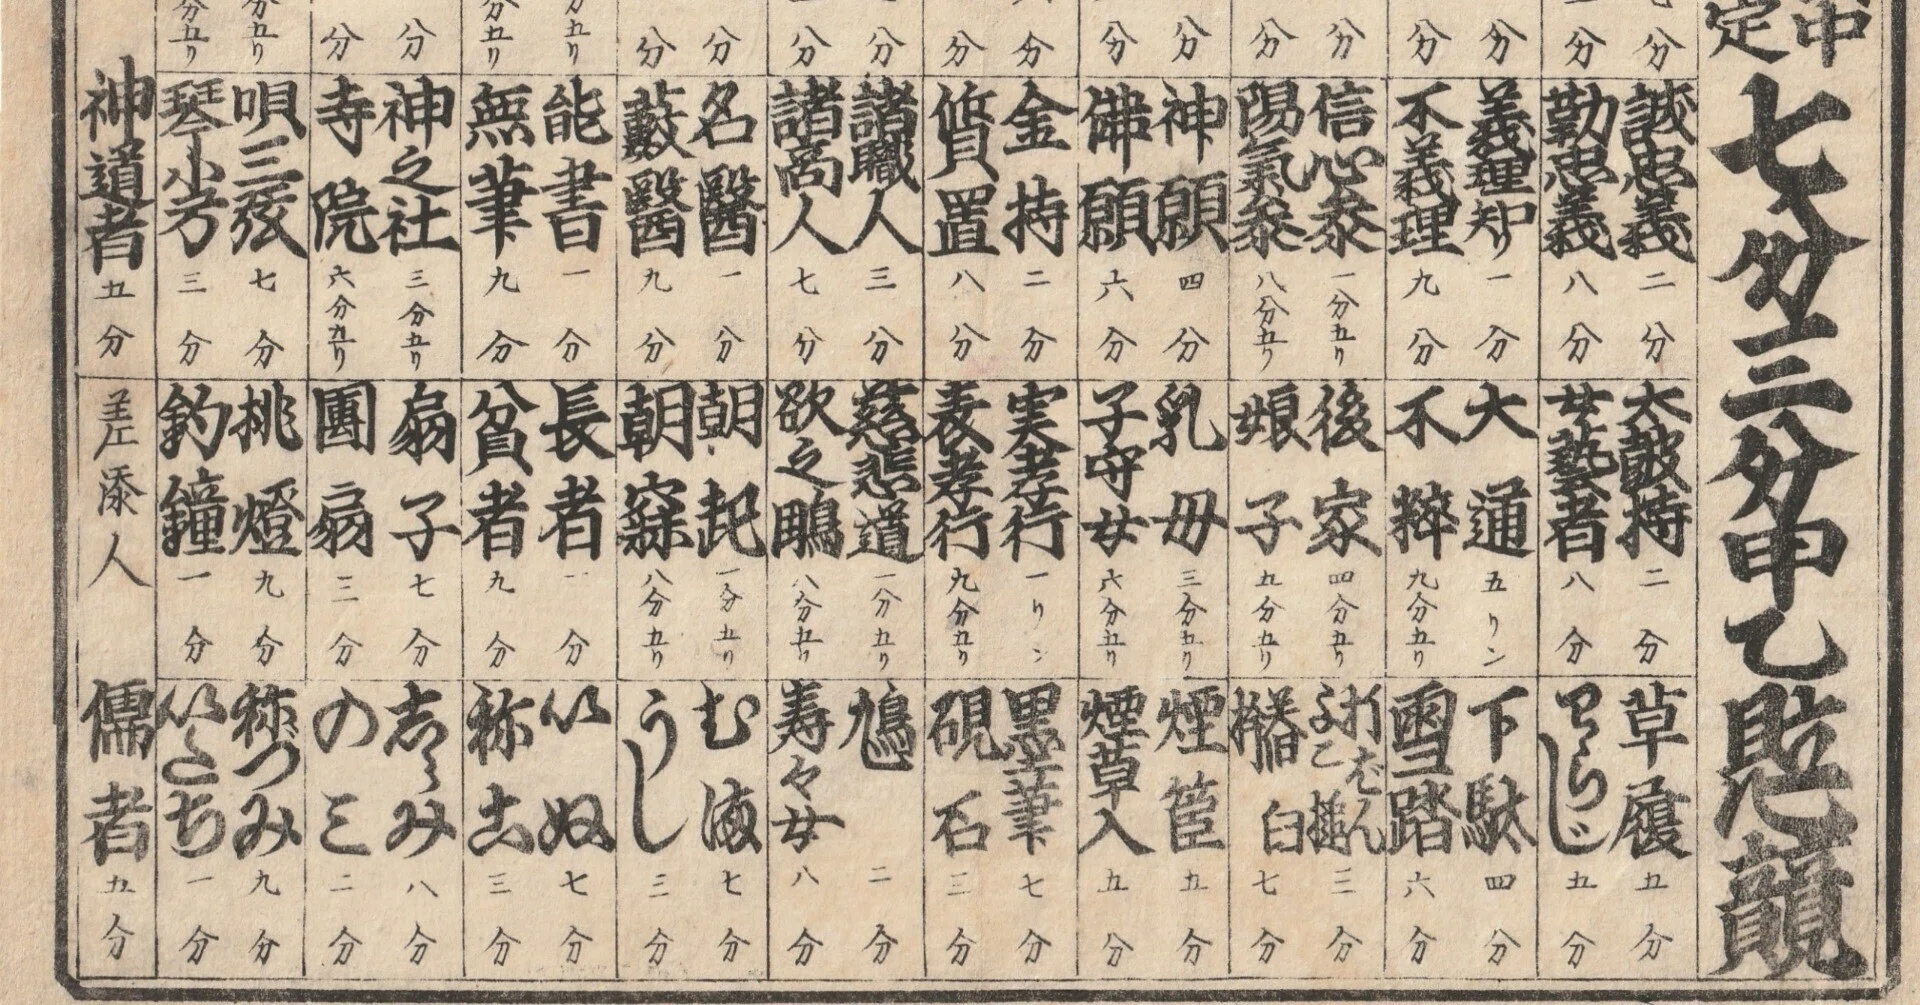 中
定
七分三分甲乙競
誠忠義 二分
勤忠義 八分
義理知り 一分
不義理 九分
信心参 一分五り
陽氣参 八分五り
神願 四分
佛願 六分
金持 二分
質置 八分
諸職人 三分
諸商人 七分
名醫 一分
藪醫 九分
能書 一分
無筆 九分
神之社 三分五り
寺院 六分五り
唄三弦 七分
琴小弓 三分
神道者 五分
太鼓持 二分
女藝者 八分
大通 五リン
不粋 九分五り
後家 四分五り
娘子 五分五り
乳母 三分五り
子守女 六分五り
実孝行 一リン
表孝行 九分五り
慈悲道 一分五り
欲之鵰 八分五り
朝起 一分五り
朝寐 八分五り
長者 一分
貧者 九分
扇子 七分
團扇 三分
桃燈 九分
釣鐘 一分
差添人
草履 五分
わらじ 五分
下駄 四分
雪踏 六分
三分
臼 七分
煙管 五分
煙草入 五分
墨筆 七分
硯石 三分
鳩 二分
寿々女 八分
七分
うし 三分
いぬ 七分
称こ 三分
志らみ 八分
のミ 二分
称づみ 九分
いたち 一分
儒者 五分